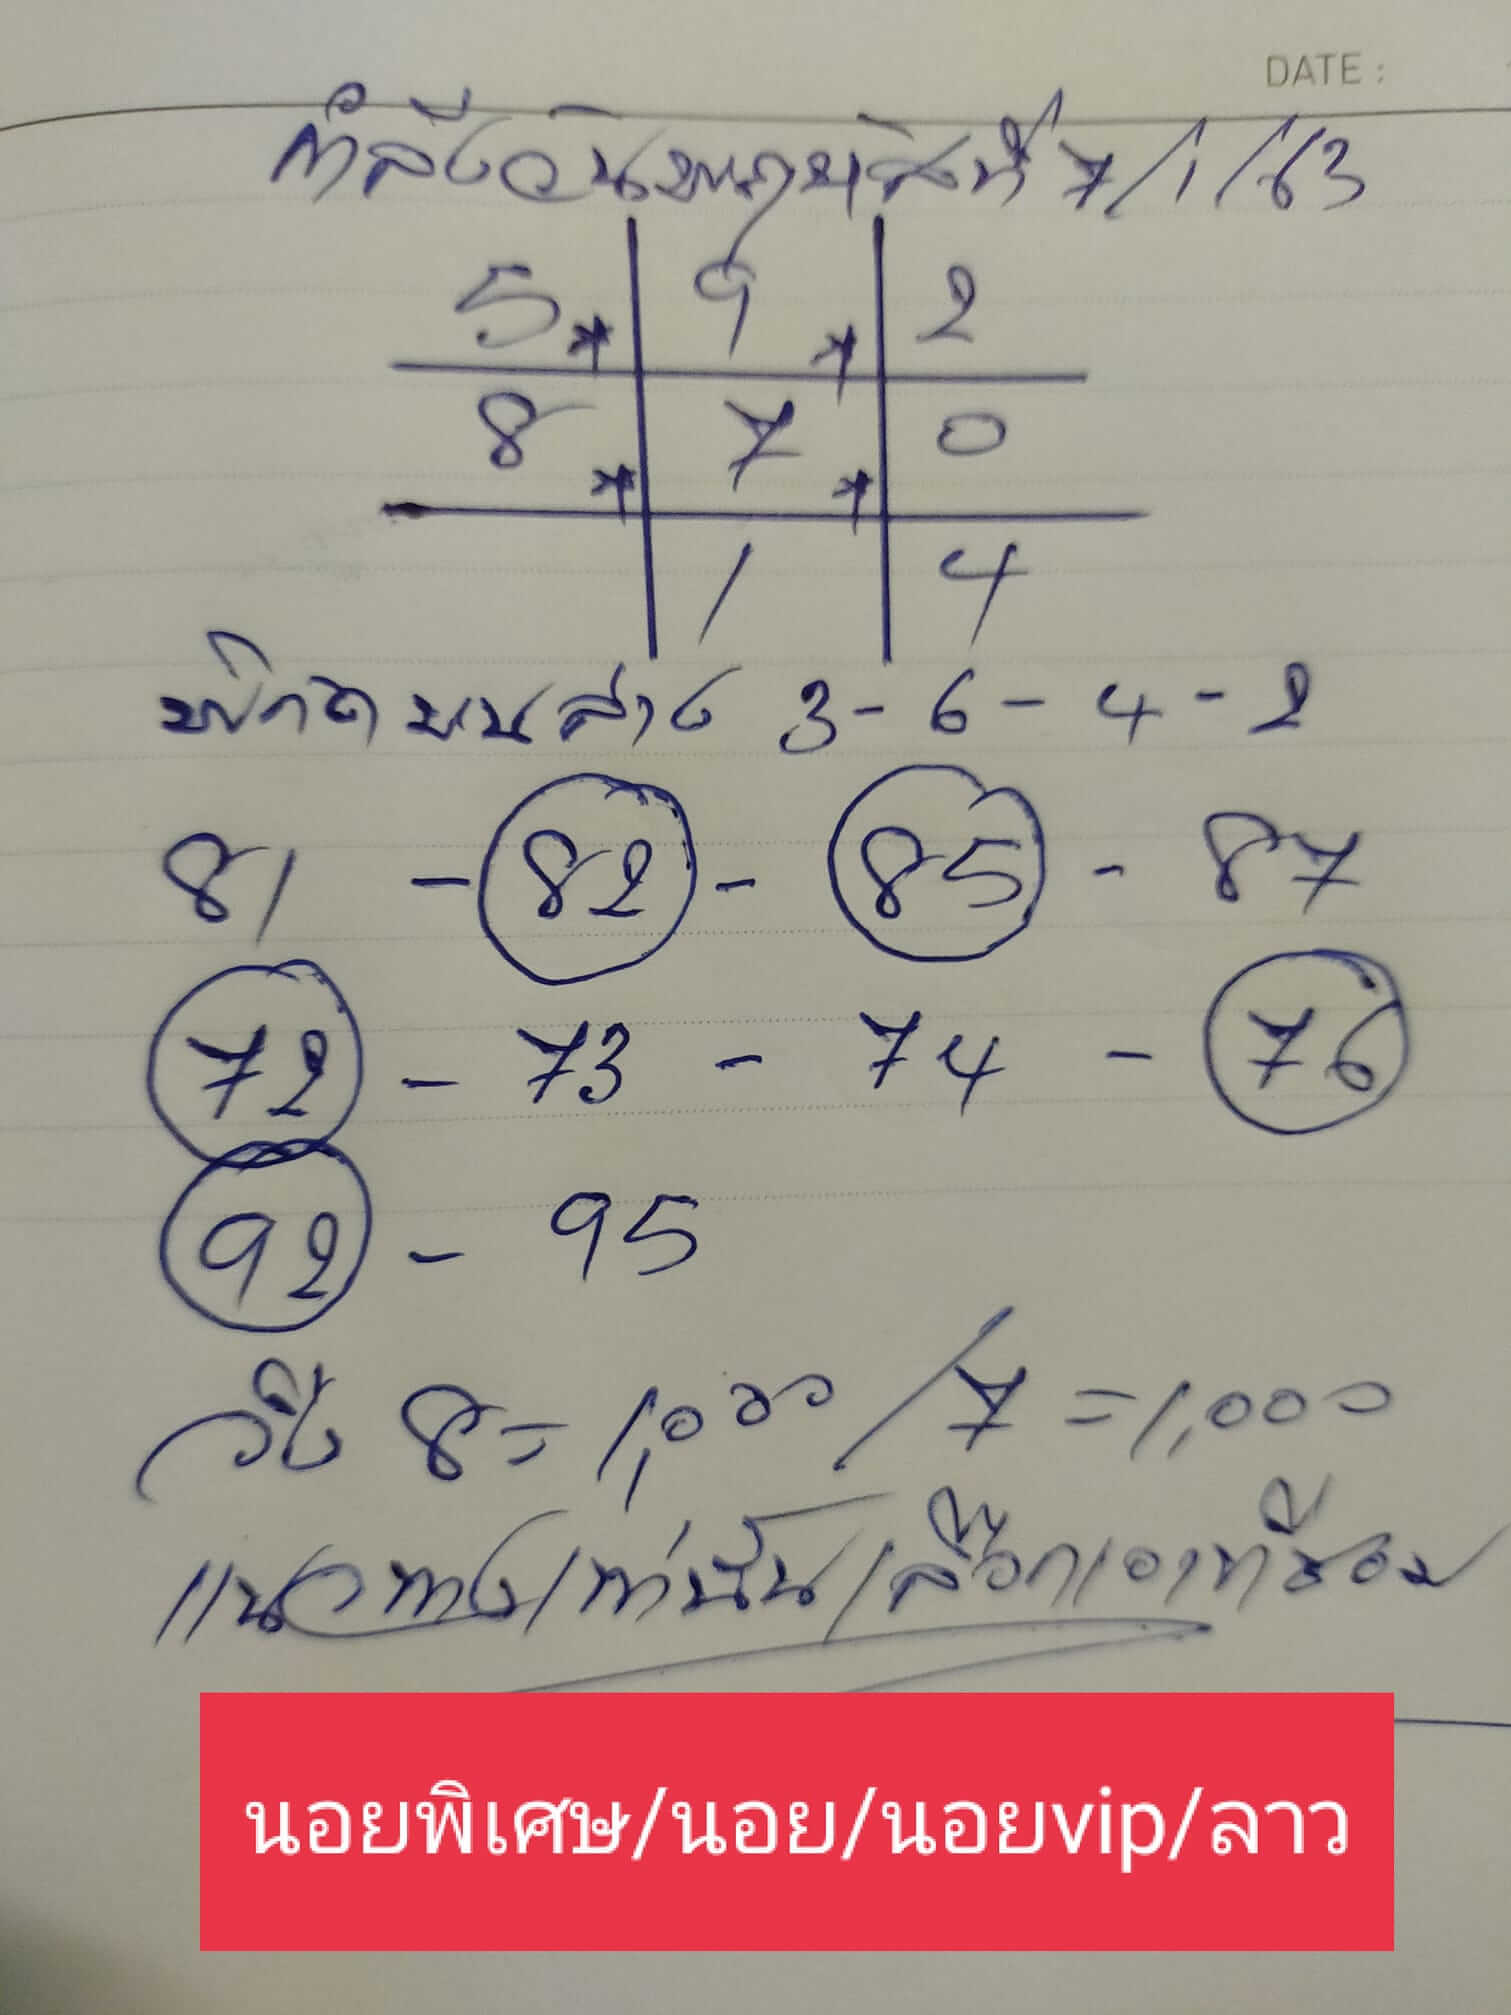 DATE :
กำลังวันพฤหัสที่ 7/1/63
5 * 9 * 2
8 * 7 * 0
1 4
พิกัดบนล่าง 3 - 6 - 4 - 2
81 - 82 - 85 - 87
72 - 73 - 74 - 76
92 - 95
วิ่ง 8 = 1,000 / 7 = 1,000
แนวทางเท่านั้นเลือกเอาที่ชอบ
นอยพิเศษ/นอย/นอยvip/ลาว